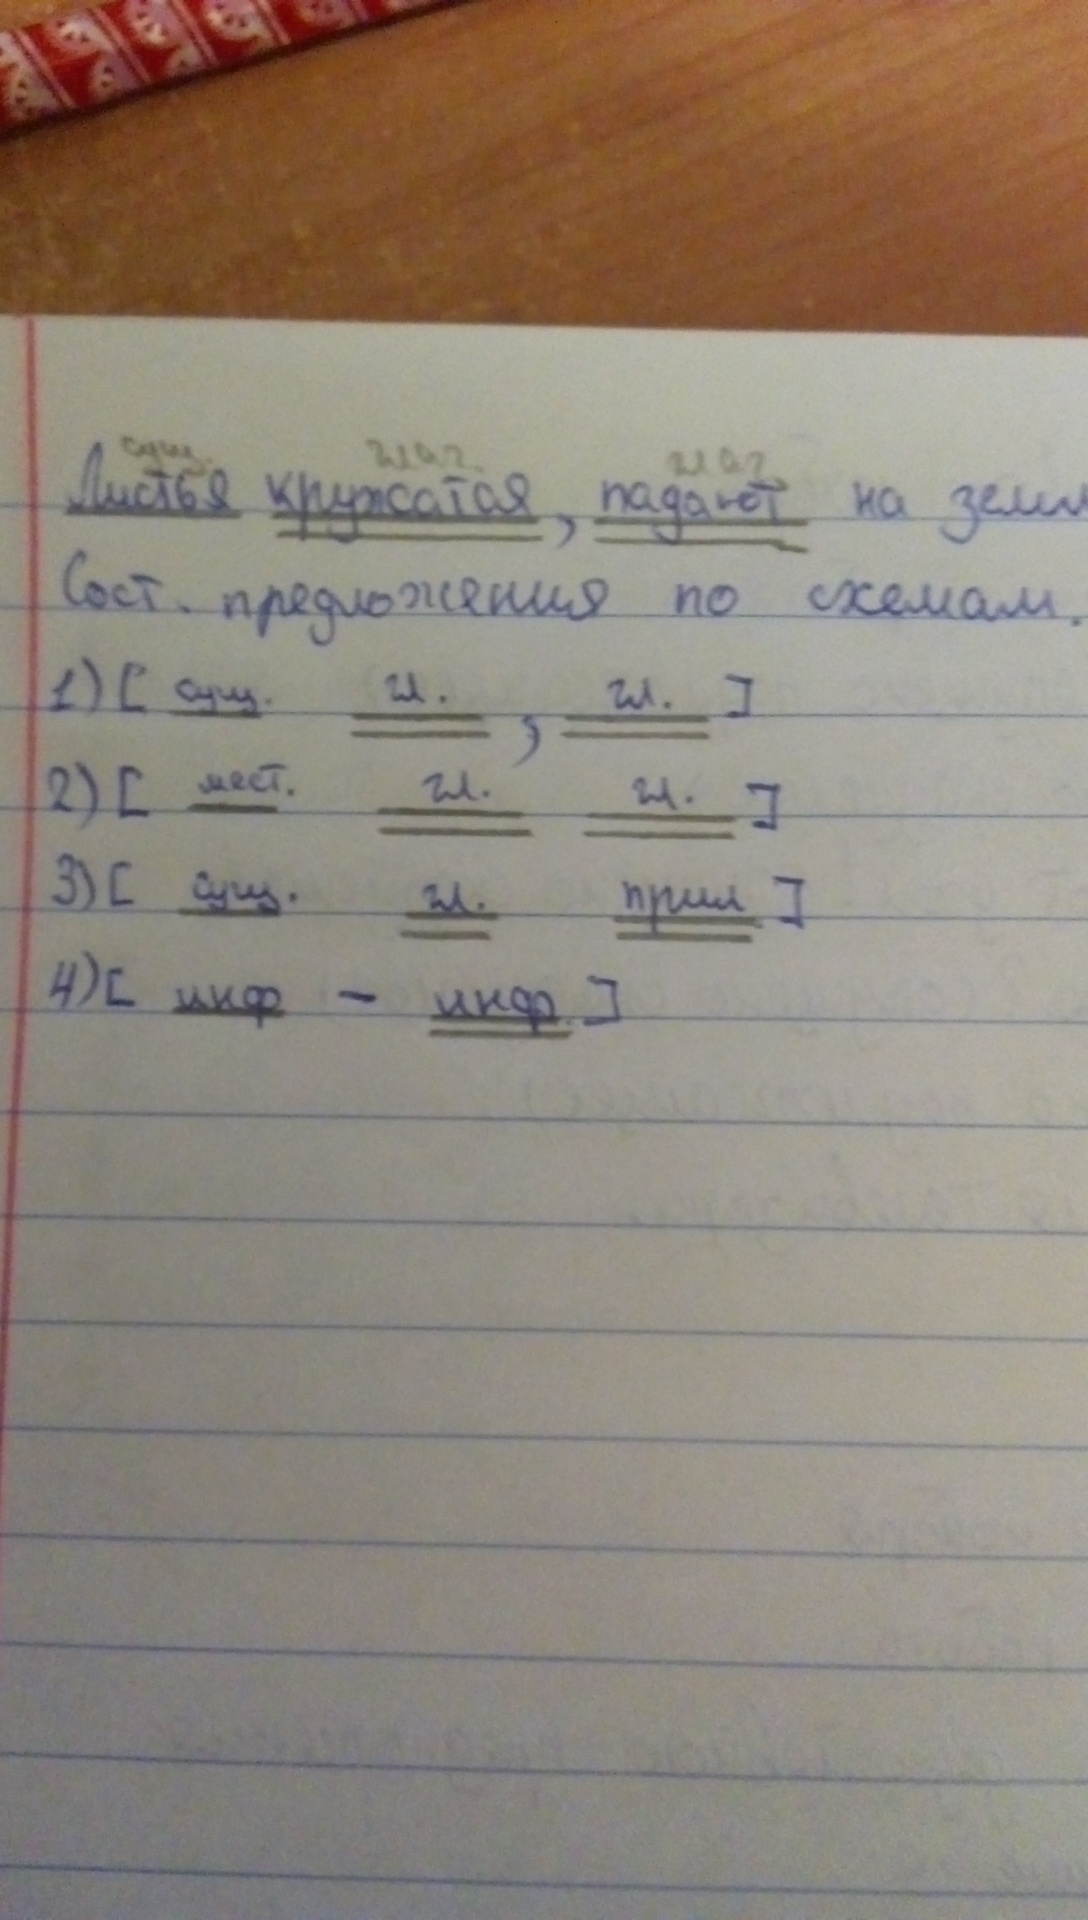 сущ. глаг. глаг.
Листья кружатся, падают на
Сост. предложения по схемам.
1) [ сущ. гл. , гл. ]
2) [ мест. гл. гл. ]
3) [ сущ. гл. прил ]
4) [ инф - инф. ]